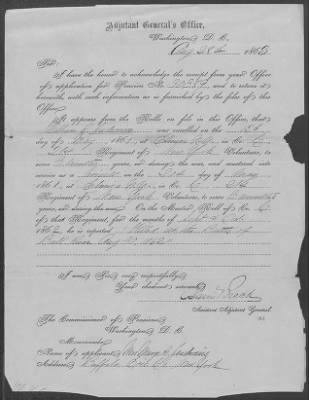 Adjutant General's Office,
Washington, D. C.
Aug 28th, 1863
Sir:
I have the honor to acknowledge the receipt from your Office
of application for Pension No. and to return it
herewith, with such information as is furnished by the files of this
Office.
It appears from the Rolls on file in this Office, that
was enrolled on the
day of May, 1861, at in Co.
21st Regiment of New York Volunteers, to
serve years, and during the war, and mustered into
service as a on the day of May
1861, at in Co. 21st
Regiment of New York Volunteers, to serve
years, and during the war. On the Muster Roll of Co.
of that Regiment, for the months of Sept & Oct,
1862, he is reported Killed at the Battle of
Bull Run Aug 30, 1862
I am, Sir, very respectfully,
Your obedient servant,
Assistant Adjutant General.
The Commissioner of Pensions,
Washington, D. C.
Memoranda:
Name of applicant, Mrs Mary A.
Address, Buffalo, Erie Co. New York